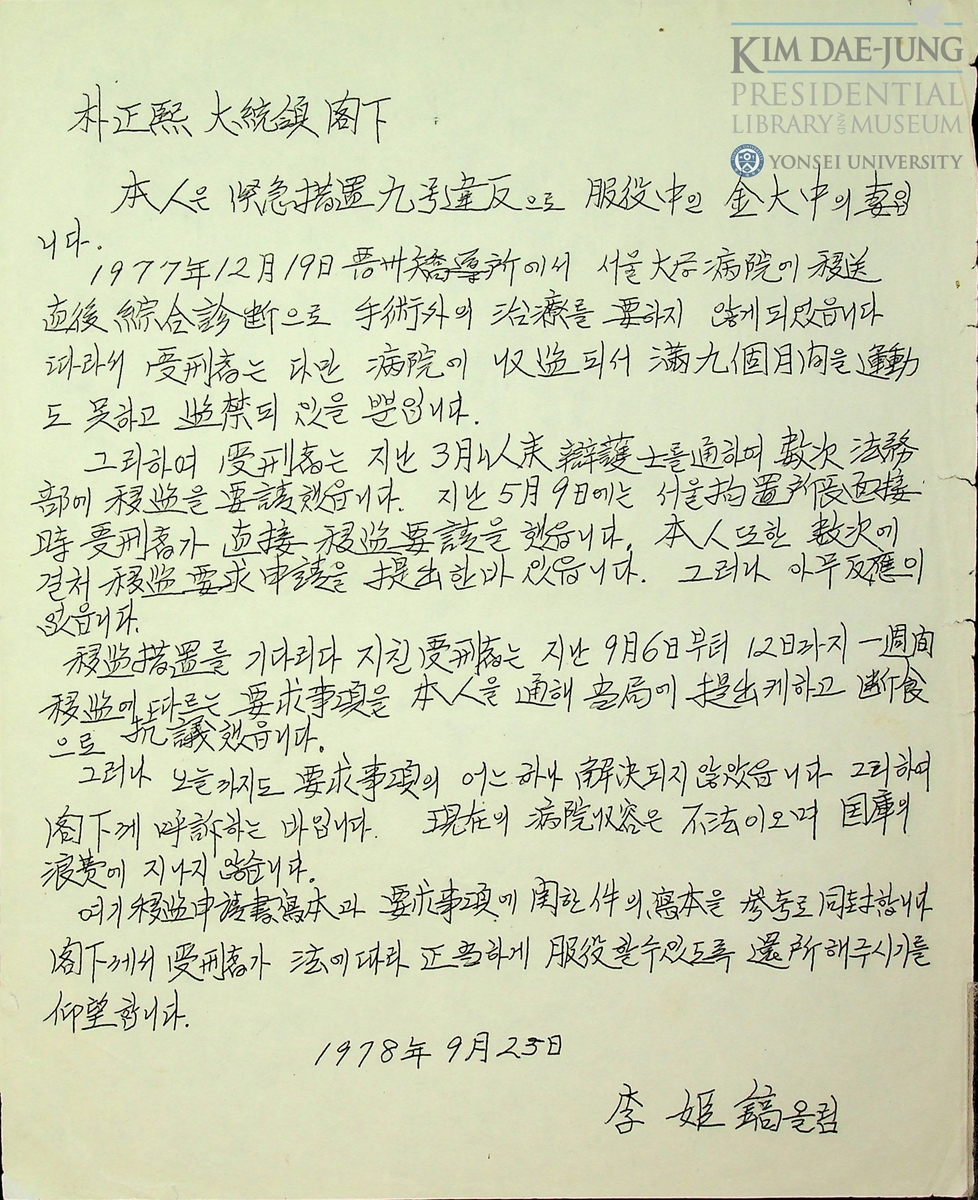 KIM DAE-JUNG
PRESIDENTIAL
LIBRARY AND MUSEUM
YONSEI UNIVERSITY
朴正熙 大統領 閣下
本人은 緊急措置九号違反으로 服役中인 金大中의 妻입
니다.
1977年12月19日 晋州矯導所에서 서울大学病院에 移送
直後 綜合診断으로 手術外의 治療를 要하지 않게되었읍니다
따라서 受刑者는 다만 病院에 収監되서 満九個月间을 運動
도 못하고 监禁되 있을 뿐입니다.
그리하여 受刑者는 지난 3月4人末 辯護士를通하여 数次 法務
部에 移监을 要請했읍니다. 지난 5月9日에는 서울拘置所長面接
時 受刑者가 直接 移监要請을 했읍니다. 本人또한 数次에
걸처 移监要求申請을 提出한바 있읍니다. 그러나 아무反應이
없읍니다.
移监措置를 기다리다 지친 受刑者는 지난 9月6日부터 12日까지 一週間
移监에 따르는 要求事項을 本人을 通해 当局에 提出케하고 断食
으로 抗議했읍니다.
그러나 오늘까지도 要求事項의 어느하나 解決되지 않았읍니다 그리하여
閣下께 呼訴하는 바입니다. 現在의 病院収容은 不法이오며 国庫의
浪費에 지나지 않습니다.
여기 移监申請書寫本과 要求事項에 関한 件의 寫本을 参考로 同封합니다
閣下께서 受刑者가 法에따라 正当하게 服役할수있도록 還所해주시기를
仰望합니다.
1978年 9月 23日
李 姬 鎬 올림